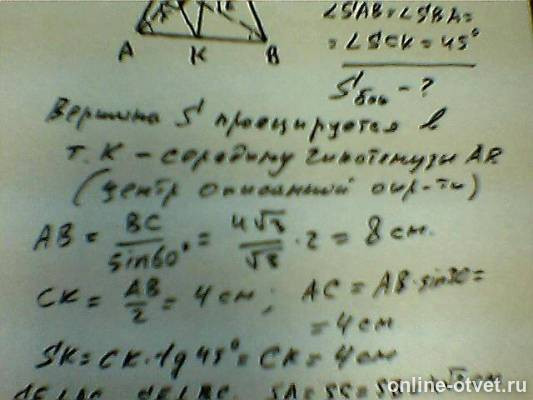 ∠SAB=∠SBA=
=∠SCK=45°
Sбок - ?
A K B
Вершина S проецируется в
т. К – середину гипотенузы AB
(центр описанной окр-ти)
AB = BC/sin60° = 4√3/√3 · 2 = 8 см.
CK = AB/2 = 4 см; AC = AB·sin30=
= 4 см
SK = CK·tg 45° = CK = 4 см
online-otvet.ru